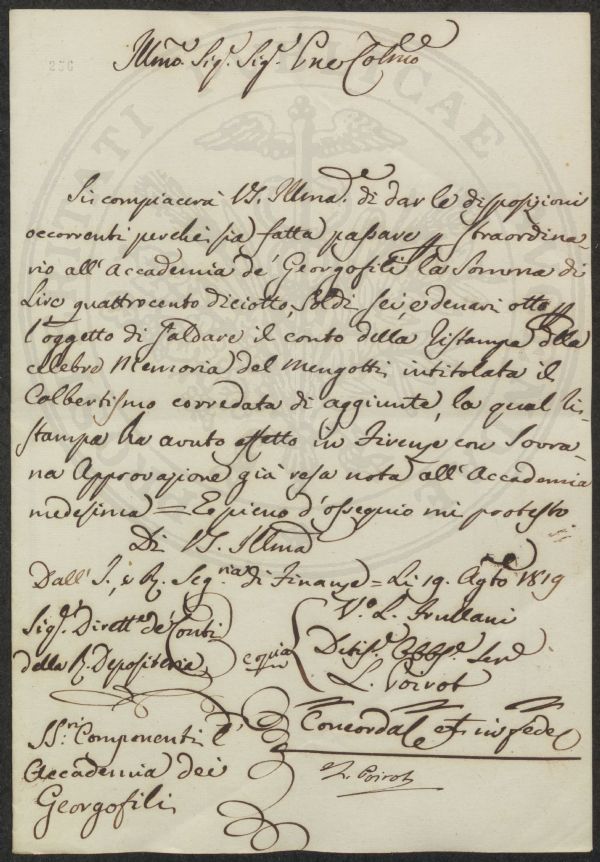 Illmo. Sig.r Sig.r Pne Colmo
Si compiacerà VS. Illma. di dar le disposizioni
occorrenti perchè sia fatta passare p straordina
rio all'Accademia de' Georgofili la Somma di
Lire quattrocento diciotto, Soldi sei, e denari otto p
l'oggetto di saldare il conto della ristampa della
celebre Memoria del Mengotti intitolata il
Colbertismo corredata di aggiunte, la qual ri-
stampa ha avuto effetto in Firenze con Sovra-
na Approvazione già resa nota all'Accademia
medesima = E pieno d'ossequio mi protesto
Di VS. Illma
Dall' I. e R. Seg.ria di Finanze = Li 19. Agto 1819
Sig.r Dirett.e de' Conti
della R. Depositeria
copia
V.o L. Frullani
Devmo Obblmo Serv.e
L. Poirot
Concorda et in fede
L. Poirot
SS.ri Componenti l'
Accademia dei
Georgofili
CARITATI PUBLICAE